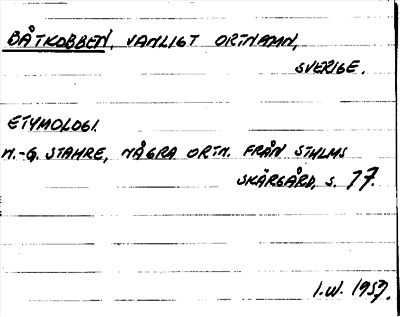 BÅTKOBBEN, VANLIGT ORTNAMN,
SVERIGE.
ETYMOLOGI.
N.-G. STAHRE, NÅGRA ORTN. FRÅN STHLMS
SKÄRGÅRD, S. 77.
I.W. 1953.